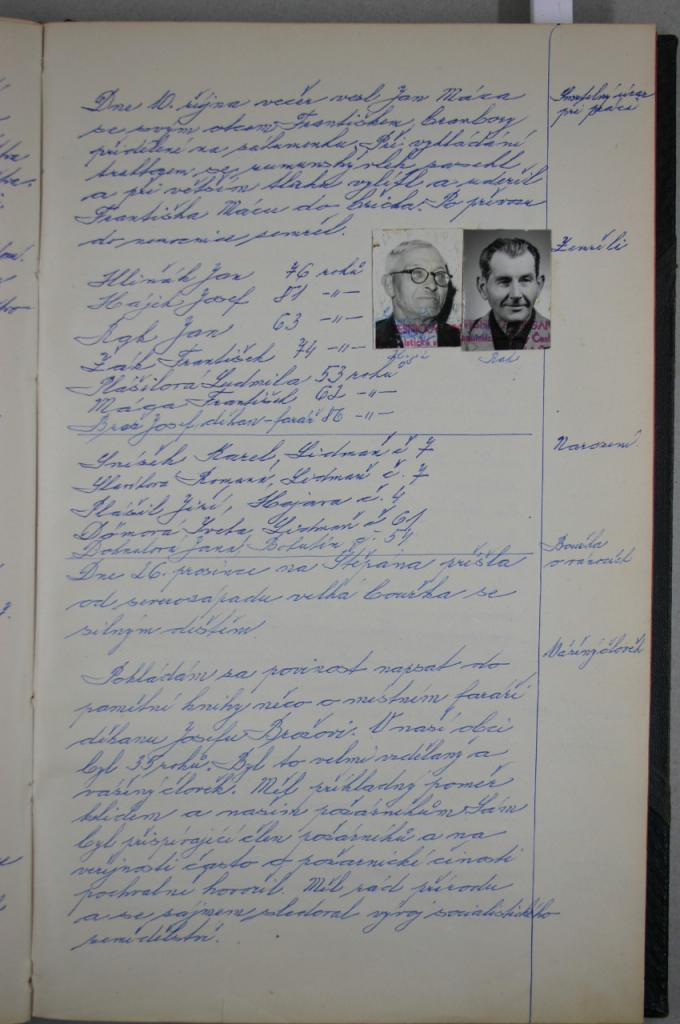 Dne 10. října večer vezl Jan Máca
Smrtelný úraz
se svým otcem Františkem, brambory
při práci
přidělené na záhumenku. Při vykládání
traktorem se rumunský vlek zasekl
a při větším tlaku vylítl a udeřil
Františka Mácu do břicha. Po převozu
do nemocnice zemřel.
Zemřeli
Hliňák Jan 76 roků
Hájek Josef 81 -"-
Jan 63 -"-
Žák František 74 -"-
Plášilová Ludmila 53 roků
Máca František 62 -"-
Brož Josef, děkan-farář 86 -"-
Narození
Karel, Lidmaň č. 7
Romana, Lidmaň č. 7
Plášil Jiří, Hojava č. 4
Iveta, Lidmaň č 61
Jana, č. 54
Bouřka
o vánocích
Dne 26. prosince na Štěpána přišla
od severozápadu velká bouřka se
silným deštěm.
Vážený člověk
Pokládám za povinost napsat do
pamětní knihy něco o místním faráři
děkanu Josefu Brožovi. V naší obci
byl 35 roků. Byl to velmi vzdělaný a
vážený člověk. Měl příkladný poměr
k lidem a našim požárníkům. Sám
byl přispívající člen požárníků a na
veřejnosti často o požárnické činosti
pochvalně hovořil. Měl rád přírodu
a se zájmem sledoval vývoj socialistického
zemědělství.